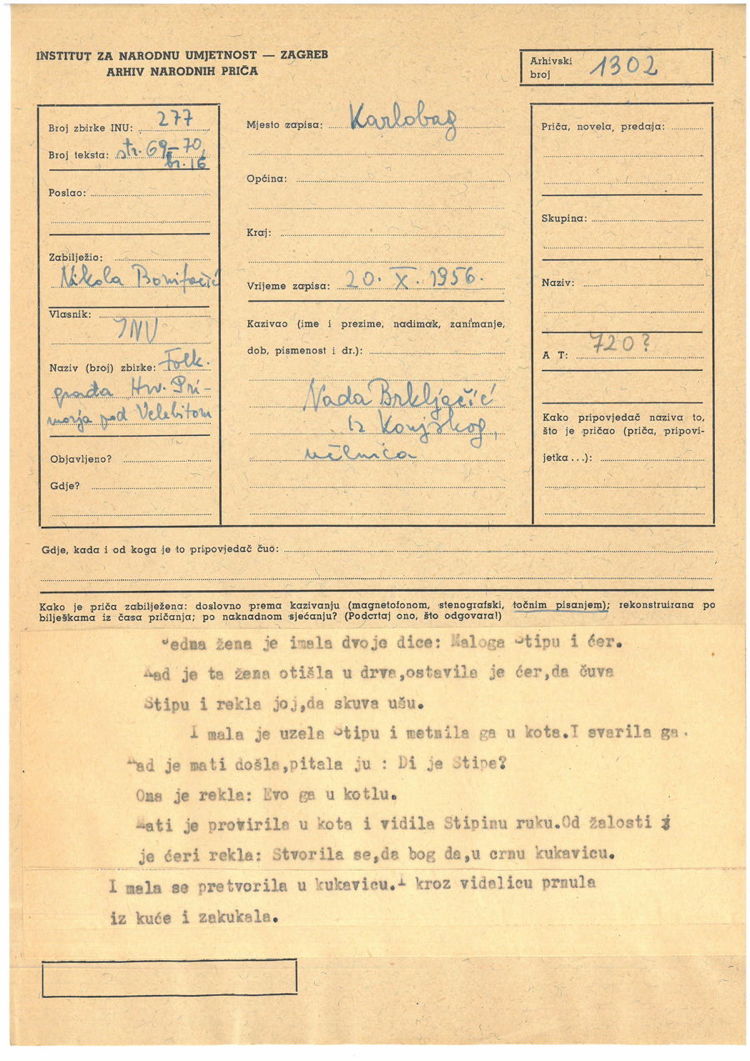 INSTITUT ZA NARODNU UMJETNOST — ZAGREB
ARHIV NARODNIH PRIČA
Arhivski
broj 1302
Broj zbirke INU: 277
Broj teksta: str. 69-70,
br. 16
Poslao:
Zabilježio:
Nikola Bonifačić
Vlasnik:
INU
Naziv (broj) zbirke: Folk.
građa Hrv. Pri-
morja pod Velebitom
Objavljeno?
Gdje?
Mjesto zapisa: Karlobag
Općina:
Kraj:
Vrijeme zapisa: 20. X. 1956.
Kazivao (ime i prezime, nadimak, zanimanje,
dob, pismenost i dr.):
Nada Brkljačić
iz Konjskog,
učenica
Priča, novela, predaja:
Skupina:
Naziv:
A T: 720?
Kako pripovjedač naziva to,
što je pričao (priča, pripovi-
jetka . . .):
Gdje, kada i od koga je to pripovjedač čuo:
Kako je priča zabilježena: doslovno prema kazivanju (magnetofonom, stenografski, točnim pisanjem); rekonstruirana po
bilješkama iz časa pričanja; po naknadnom sjećanju? (Podcrtaj ono, što odgovara!)
Jedna žena je imala dvoje dice: Maloga Stipu i ćer.
Kad je ta žena otišla u drva,ostavila je ćer,da čuva
Stipu i rekla joj,da skuva ušu.
I mala je uzela Stipu i metnila ga u kota.I svarila ga.
Kad je mati došla,pitala ju : Di je Stipe?
Ona je rekla: Evo ga u kotlu.
Mati je provirila u kota i vidila Stipinu ruku.Od žalosti
je ćeri rekla: Stvorila se,da bog da,u crnu kukavicu.
I mala se pretvorila u kukavicu.I kroz videlicu prnula
iz kuće i zakukala.